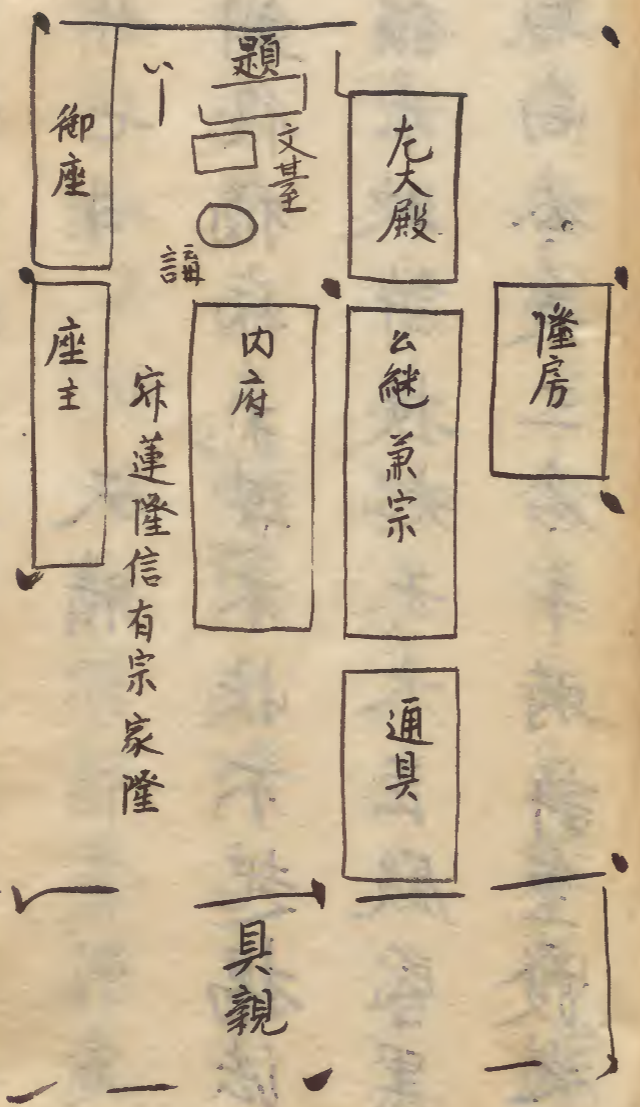 僮房
左大殿
公継 兼宗
通具
題
文基
講
内府
具親
寂蓮隆信有宗家隆
御座
座主